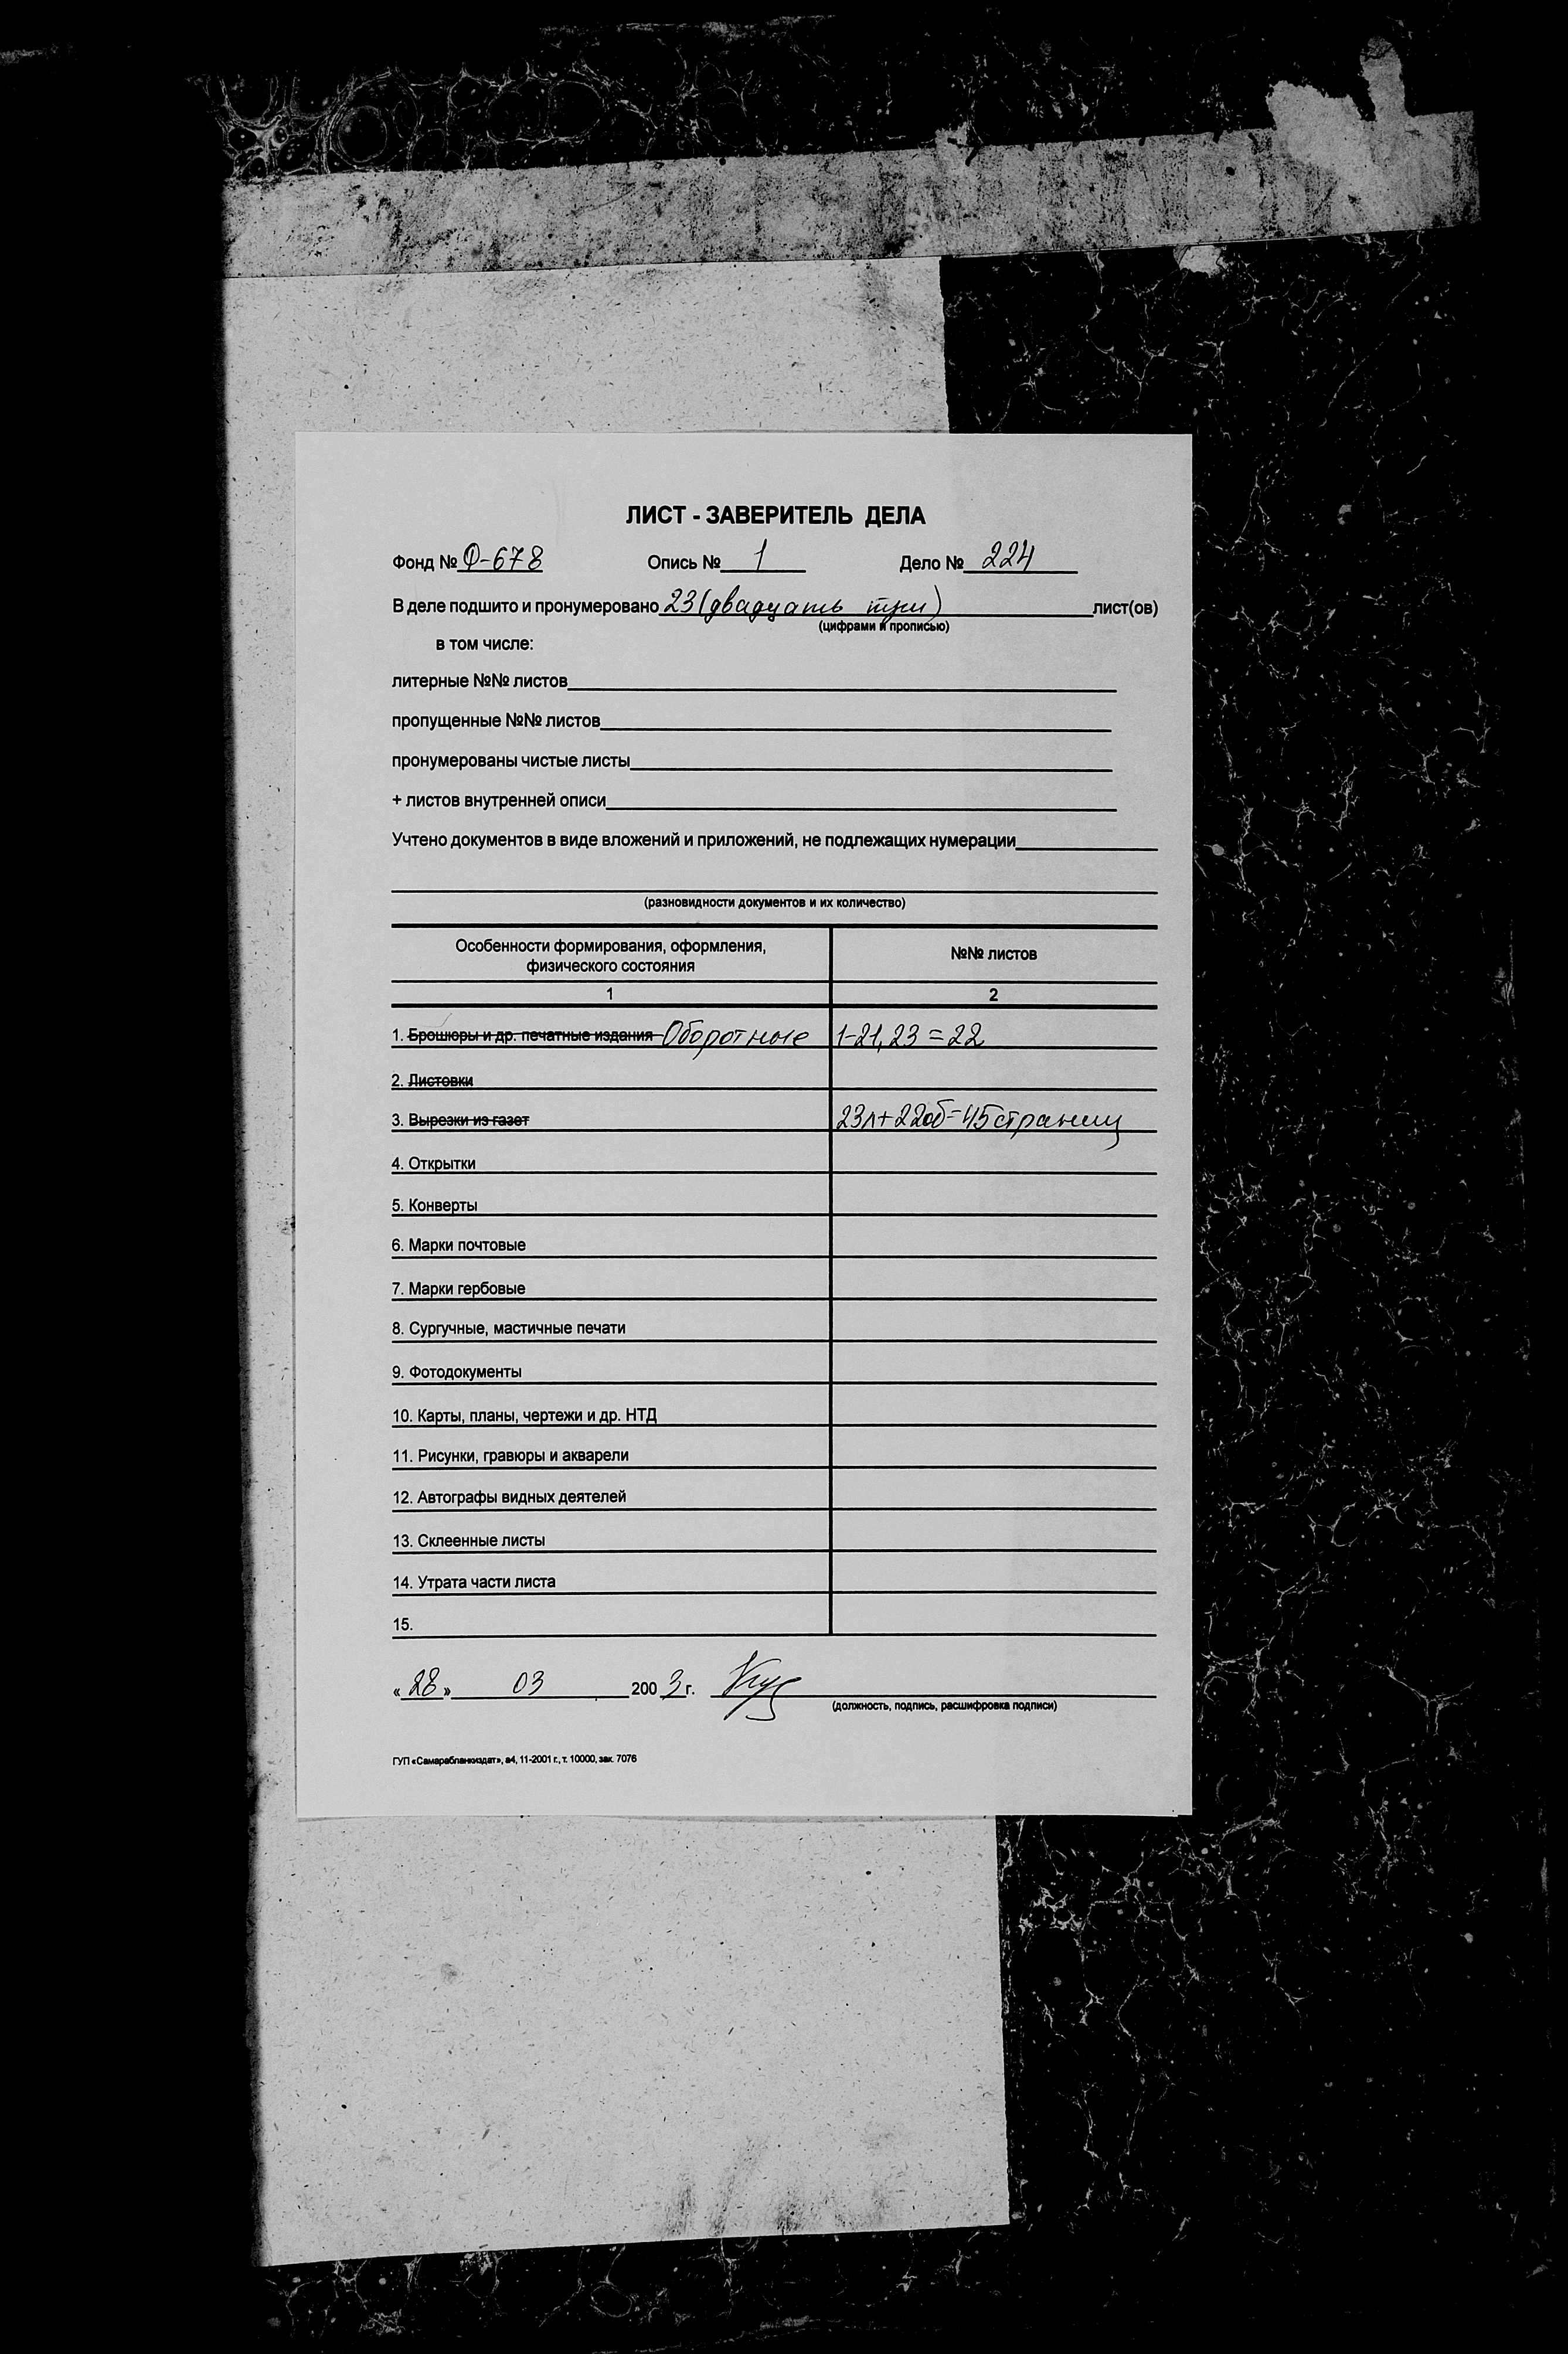 ЛИСТ - ЗАВЕРИТЕЛЬ ДЕЛА
Фонд № Ф-678 Опись № 1 Дело № 224
В деле подшито и пронумеровано 23 (двадцать три) лист(ов)
(цифрами и прописью)
в том числе:
литерные №№ листов
пропущенные №№ листов
пронумерованы чистые листы
+ листов внутренней описи
Учтено документов в виде вложений и приложений, не подлежащих нумерации
(разновидности документов и их количество)
Особенности формирования, оформления, №№ листов
физического состояния
1 2
1. Брошюры и др. печатные издания Оборотные 1-21, 23 = 22
2. Листовки
3. Вырезки из газет 23л+22об=45страниц
4. Открытки
5. Конверты
6. Марки почтовые
7. Марки гербовые
8. Сургучные, мастичные печати
9. Фотодокументы
10. Карты, планы, чертежи и др. НТД
11. Рисунки, гравюры и акварели
12. Автографы видных деятелей
13. Склеенные листы
14. Утрата части листа
15.
«28» 03 2003 г.
(должность, подпись, расшифровка подписи)
ГУП «Самарабланкиздат», а4, 11-2001 г., т. 10000, зак. 7076